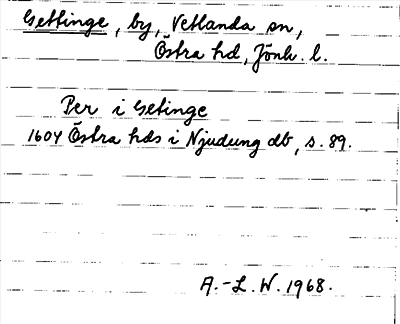 Gettinge, by, Vetlanda sn,
Östra hd, Jönk. l.
Per i Getinge
1604 Östra hds i Njudung db, s. 89.
A.-L. W. 1968.